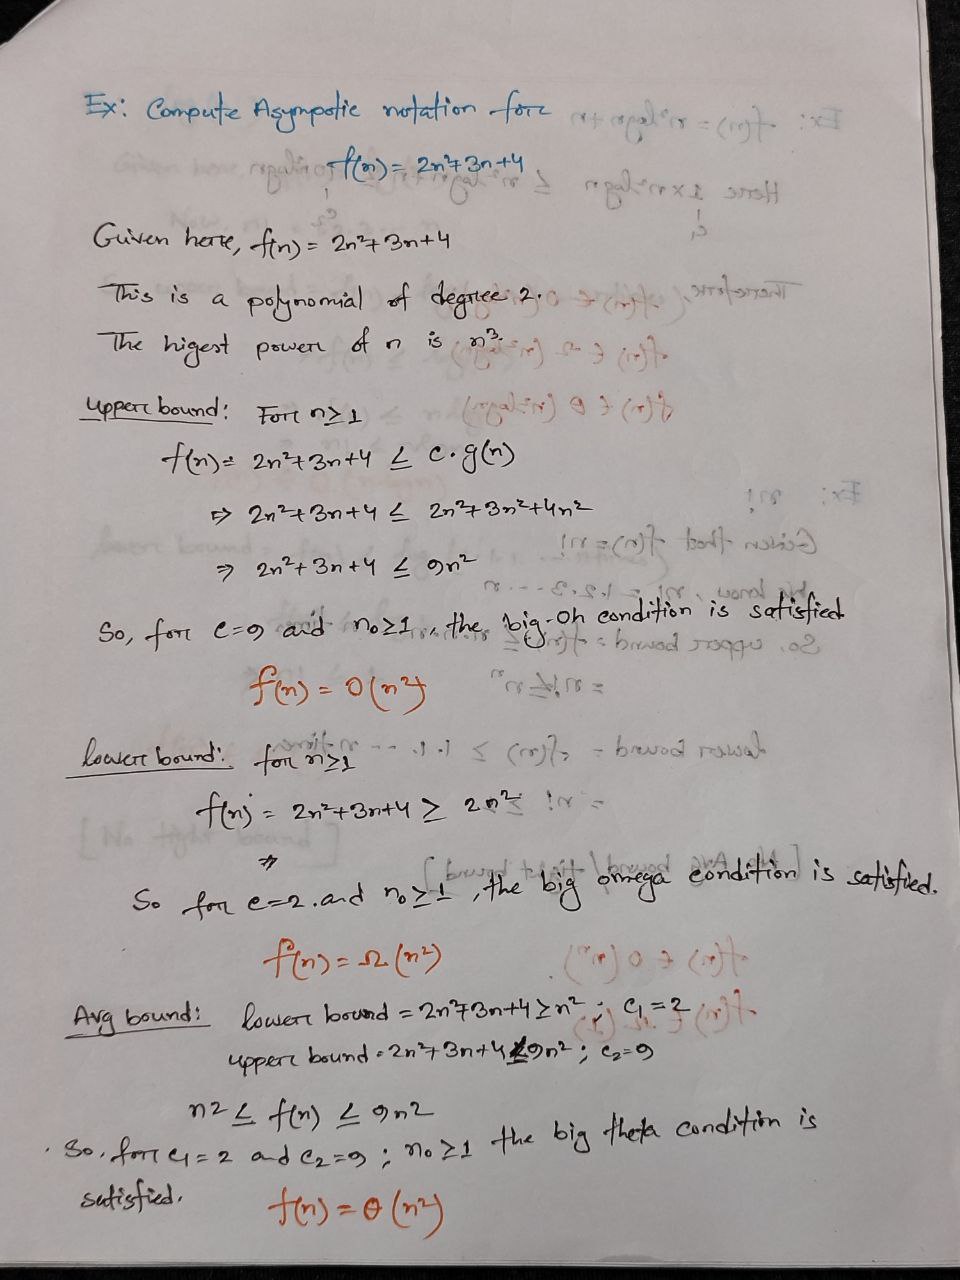 Ex: Compute Asympotic notation for
f(n) = 2n²+3n+4
Given here, f(n) = 2n²+3n+4
This is a polynomial of degree 2.
The higest power of n is n³.
Upper bound: For n≥1
f(n) = 2n²+3n+4 ≤ c.g(n)
⇒ 2n²+3n+4 ≤ 2n²+3n²+4n²
⇒ 2n²+3n+4 ≤ 9n²
So, for c=9 and n₀≥1, the big-oh condition is satisfied
f(n) = O(n²)
lower bound: for n≥1
f(n) = 2n²+3n+4 ≥ 2n²
⇒
So for c=2 and n₀≥1, the big omega condition is satisfied.
f(n) = Ω(n²)
Avg bound: lower bound = 2n²+3n+4≥n²; C₁=2
upper bound = 2n²+3n+4≤9n²; c₂=9
n2 ≤ f(n) ≤ 9n2
So, for c₁=2 and c₂=9; n₀≥1 the big theta condition is
satisfied.
f(n) = θ(n²)